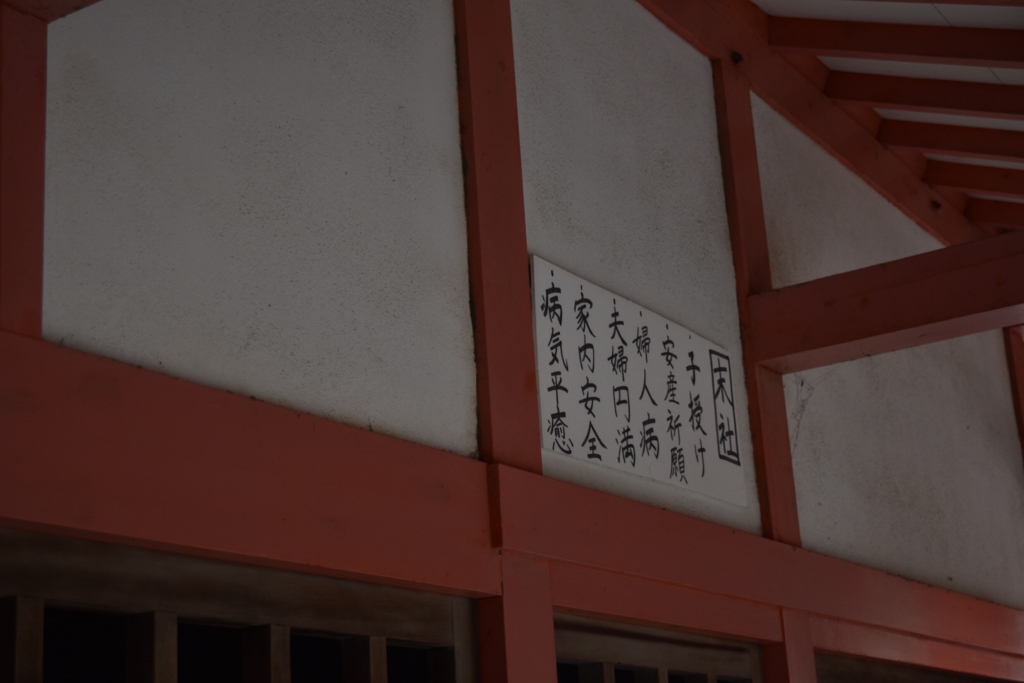 末社
・子授け
・安産祈願
・婦人病
・夫婦円満
・家内安全
・病気平癒